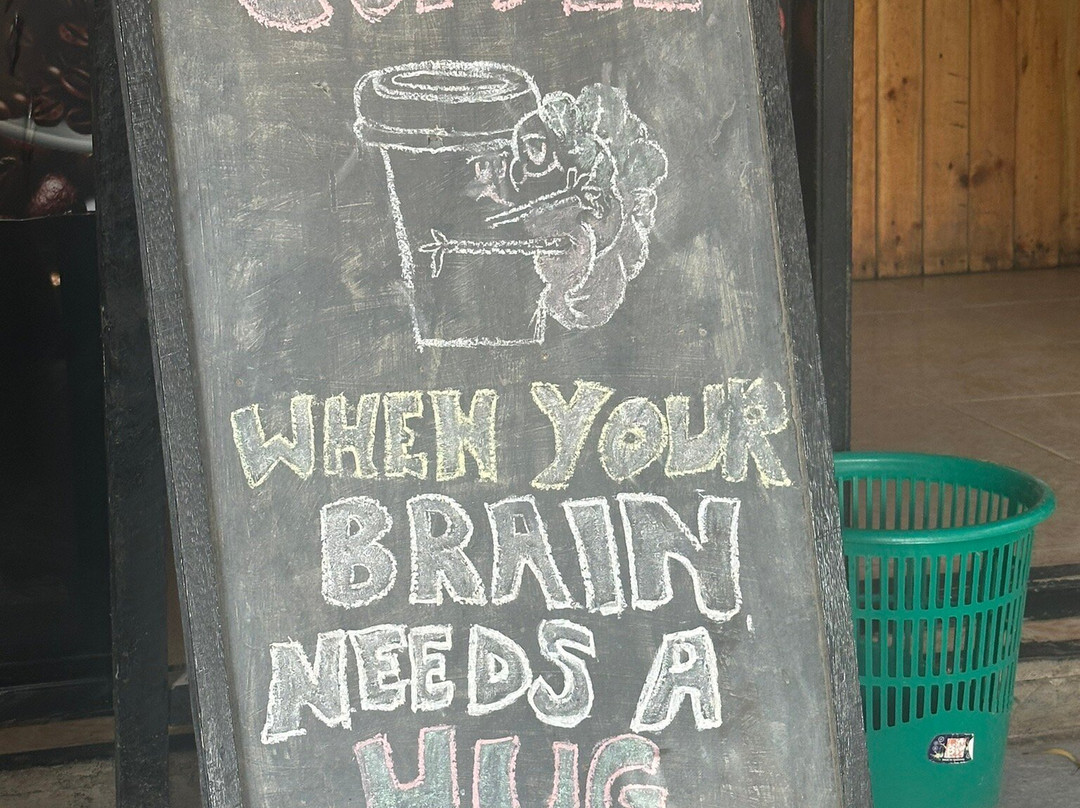 COFFEE
WHEN YOUR
BRAIN
NEEDS A
HUG